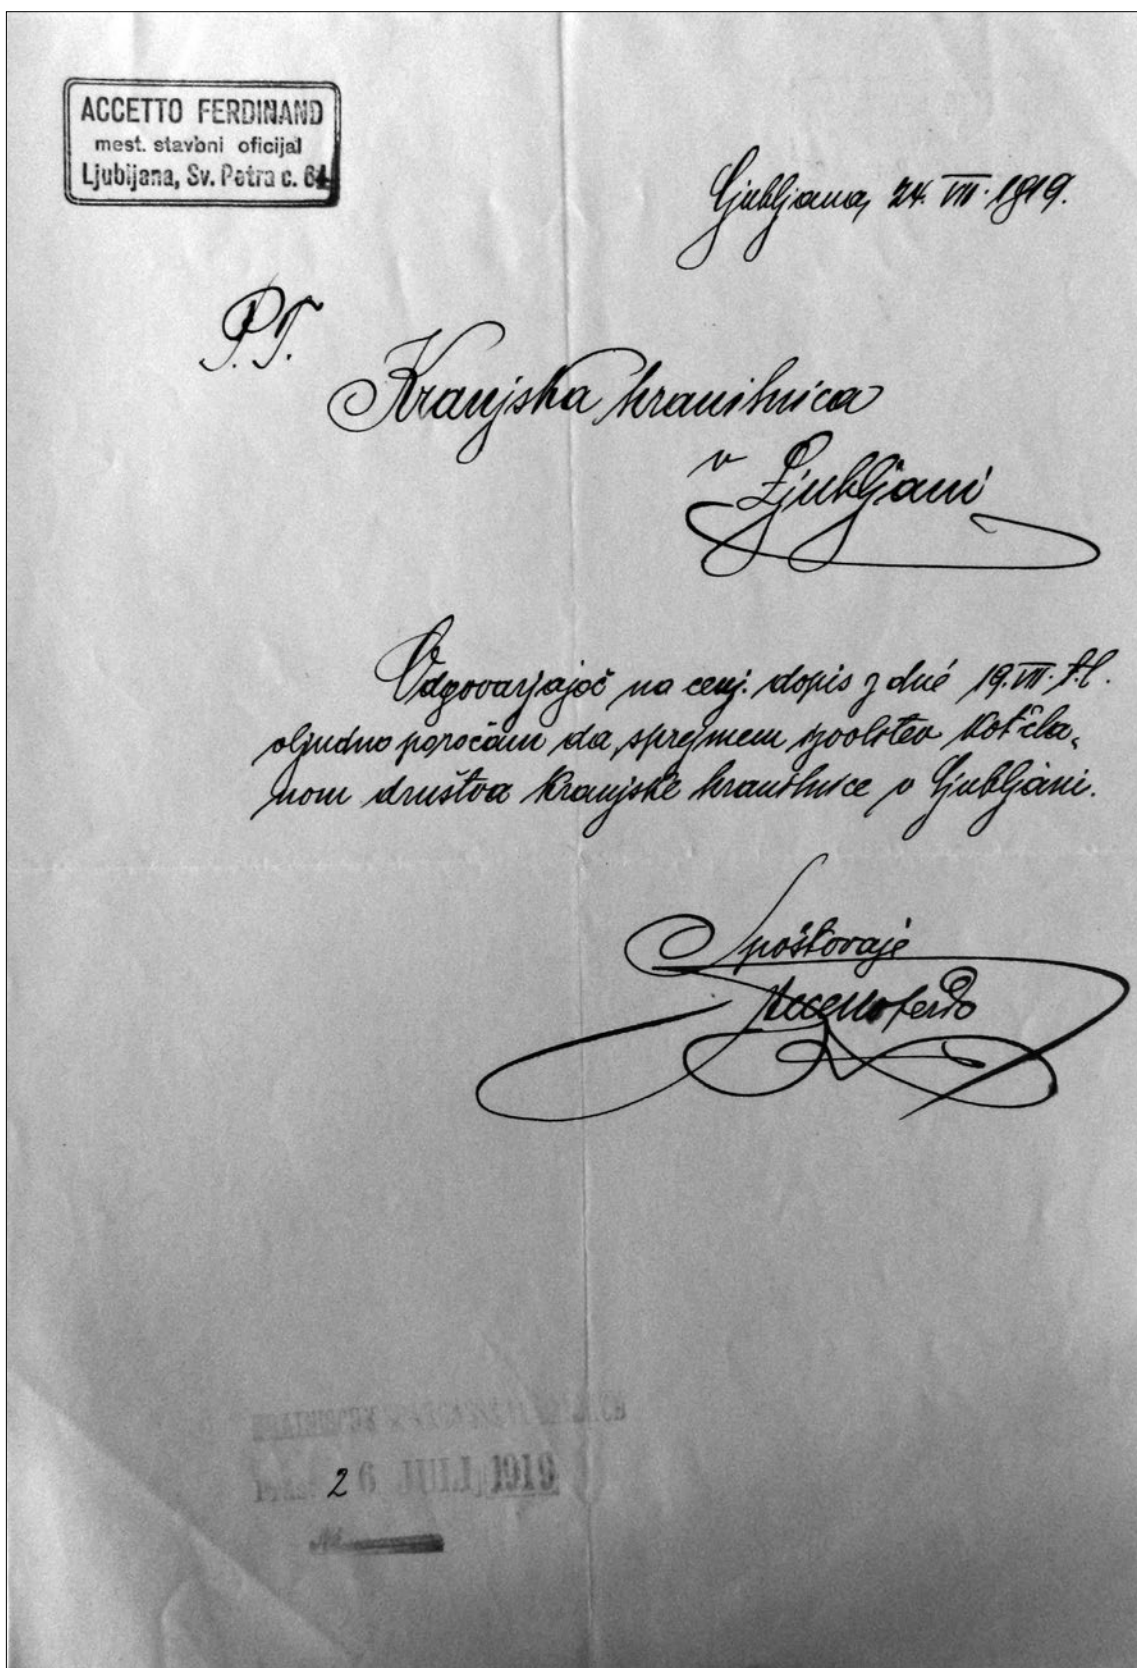 ACCETTO FERDINAND
mest. stavbni oficijal
Ljubljana, Sv. Petra c. 64
Ljubljana, 24. VII. 1919.
P.T.
Kranjska hranilnica
v
Ljubljani
Odgovarjajoč na cenj. dopis z dné 19. VII. t.l.
oljudno poročam da sprejmem izvolitev kot čla„
nom društva Kranjske hranilnice v Ljubljani.
Spoštovaje
Accetto Ferdo
26 JULI 1919